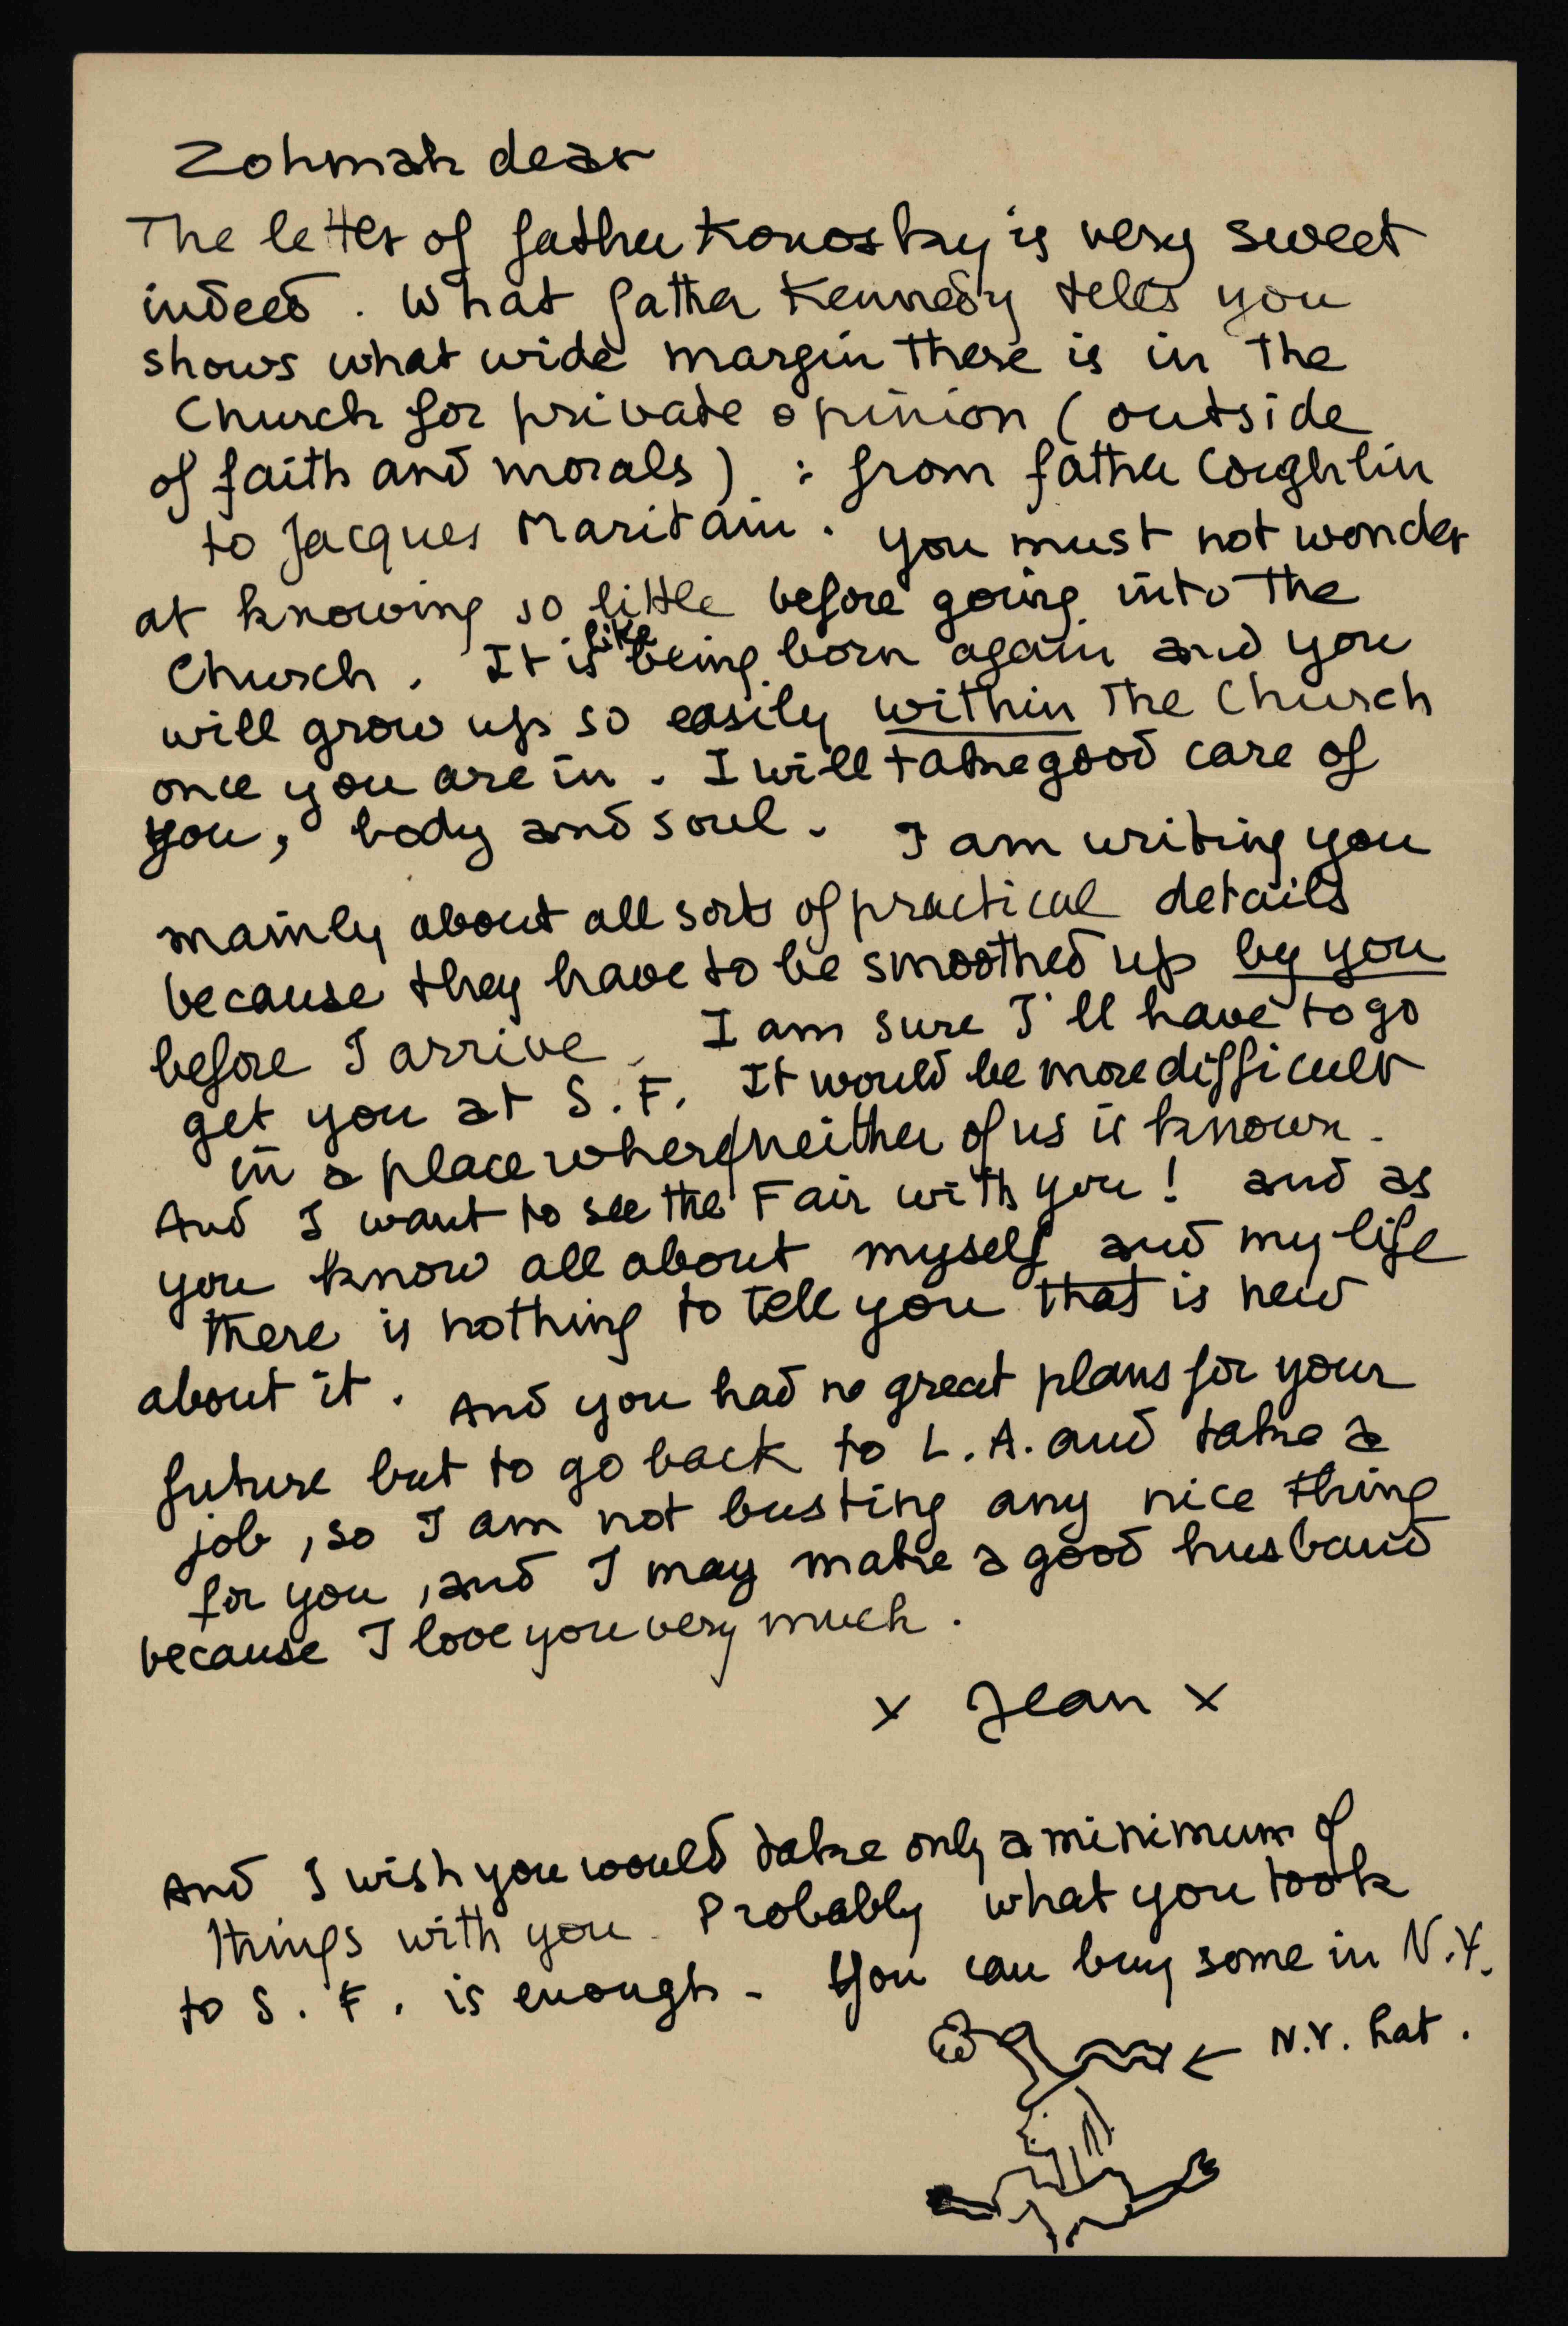 Zohmah dear
The letter of father Konosky is very sweet
indeed. What father Kennedy tells you
shows what wide margin there is in the
Church for private opinion (outside
of faith and morals) : from father Coighlin
to Jacques Maritain. you must not wonder
at knowing so little before going into the
Church. It is like being born again and you
will grow up so easily within the Church
once you are in. I will take good care of
you, body and soul. I am writing you
mainly about all sorts of practical details
because they have to be smoothed up by you
before I arrive. I am sure I'll have to go
get you at S.F. It would be more difficult
in a place where neither of us is known.
And I want to see the Fair with you! and as
you know all about myself and my life
there is nothing to tell you that is new
about it. And you had no great plans for your
future but to go back to L.A. and take a
job, so I am not busting any nice thing
for you, and I may make a good husband
because I love you very much.
x Jean x
And I wish you would take only a minimum of
things with you. Probably what you took
to S.F. is enough. You can buy some in N.Y.
← N.Y. hat.